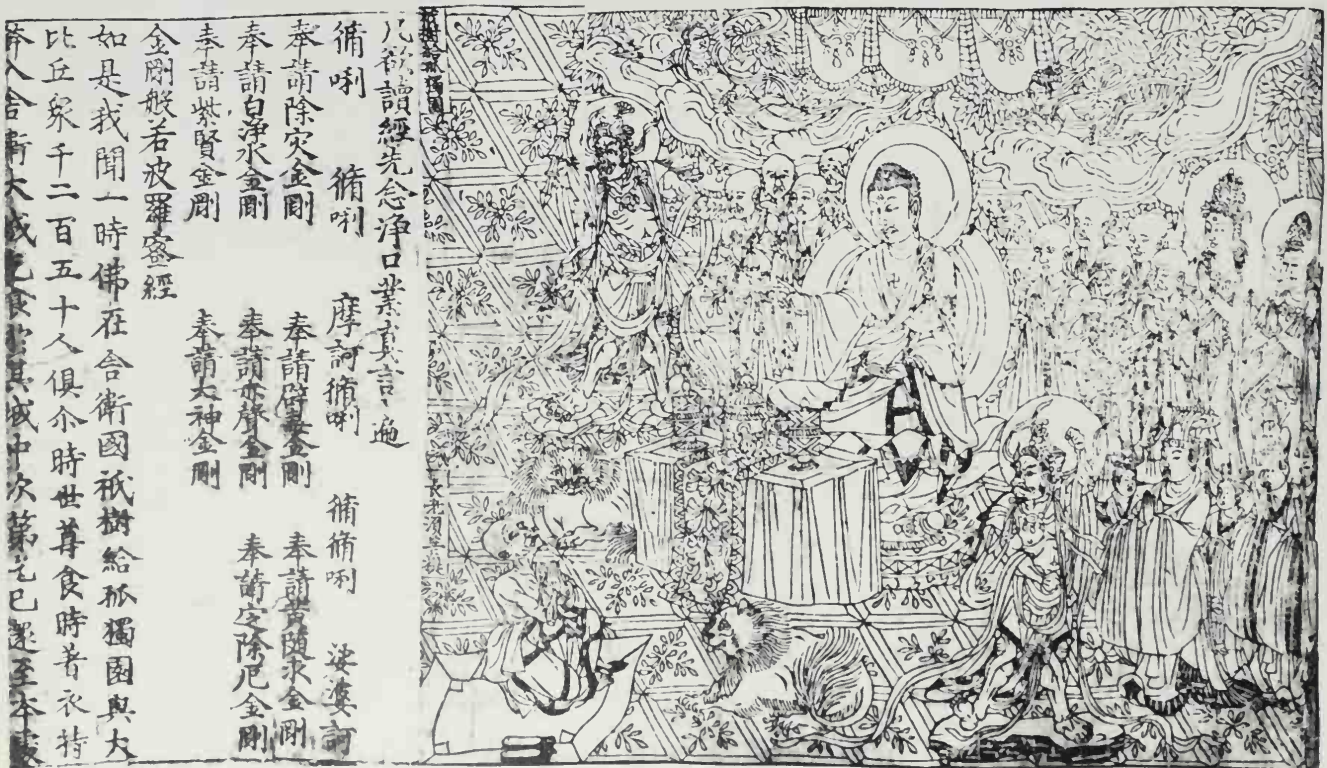 祇樹給孤獨園
長老須菩提
凡欲讀經先念淨口業真言一遍
脩唎 脩唎 摩訶脩唎 脩脩唎 娑婆訶
奉請除灾金剛 奉請辟毒金剛 奉請黃随求金剛
奉請白淨水金剛 奉請赤聲金剛 奉請定除厄金剛
奉請紫賢金剛 奉請大神金剛
金剛般若波羅蜜經
如是我聞一時佛在舍衛國祇樹給孤獨園與大
比丘眾千二百五十人俱尒時世尊食時著衣持
鉢入舍衛大城乞食於其城中次第乞已還至本處